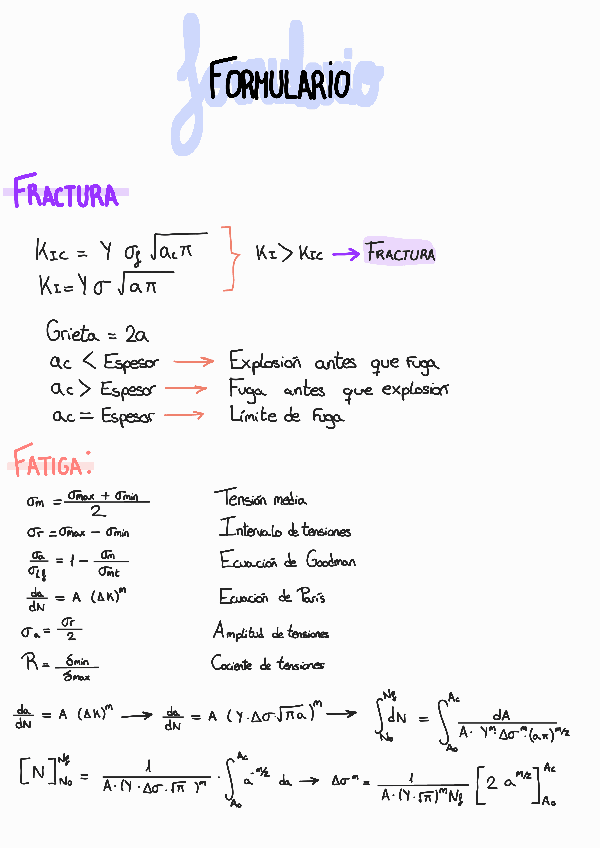 formulario
FORMULARIO
FRACTURA
KIC = Y σf √(ac π)
KI = Y σ √(a π)
KI > KIC → FRACTURA
Grieta = 2a
ac < Espesor → Explosión antes que fuga
ac > Espesor → Fuga antes que explosión
ac = Espesor → Límite de Fuga
FATIGA:
σm = (σmax + σmin)/2 Tensión media
σr = σmax − σmin Intervalo de tensiones
σa/σLf = 1 − σm/σmt Ecuación de Goodman
da/dN = A (ΔK)^m Ecuación de París
σa = σr/2 Amplitud de tensiones
R = σmin/σmax Cociente de tensiones
da/dN = A (ΔK)^m → da/dN = A (Y·Δσ√(πa))^m → ∫_{No}^{Nf} dN = ∫_{Ao}^{Ac} dA/(A·Y^m·Δσ^m·(aπ)^{m/2})
[N]_{No}^{Nf} = 1/(A·(Y·Δσ·√π)^m) · ∫_{Ao}^{Ac} a^{-m/2} da → Δσ^m = 1/(A·(Y·√π)^m Nf) [2 a^{m/2}]_{Ao}^{Ac}